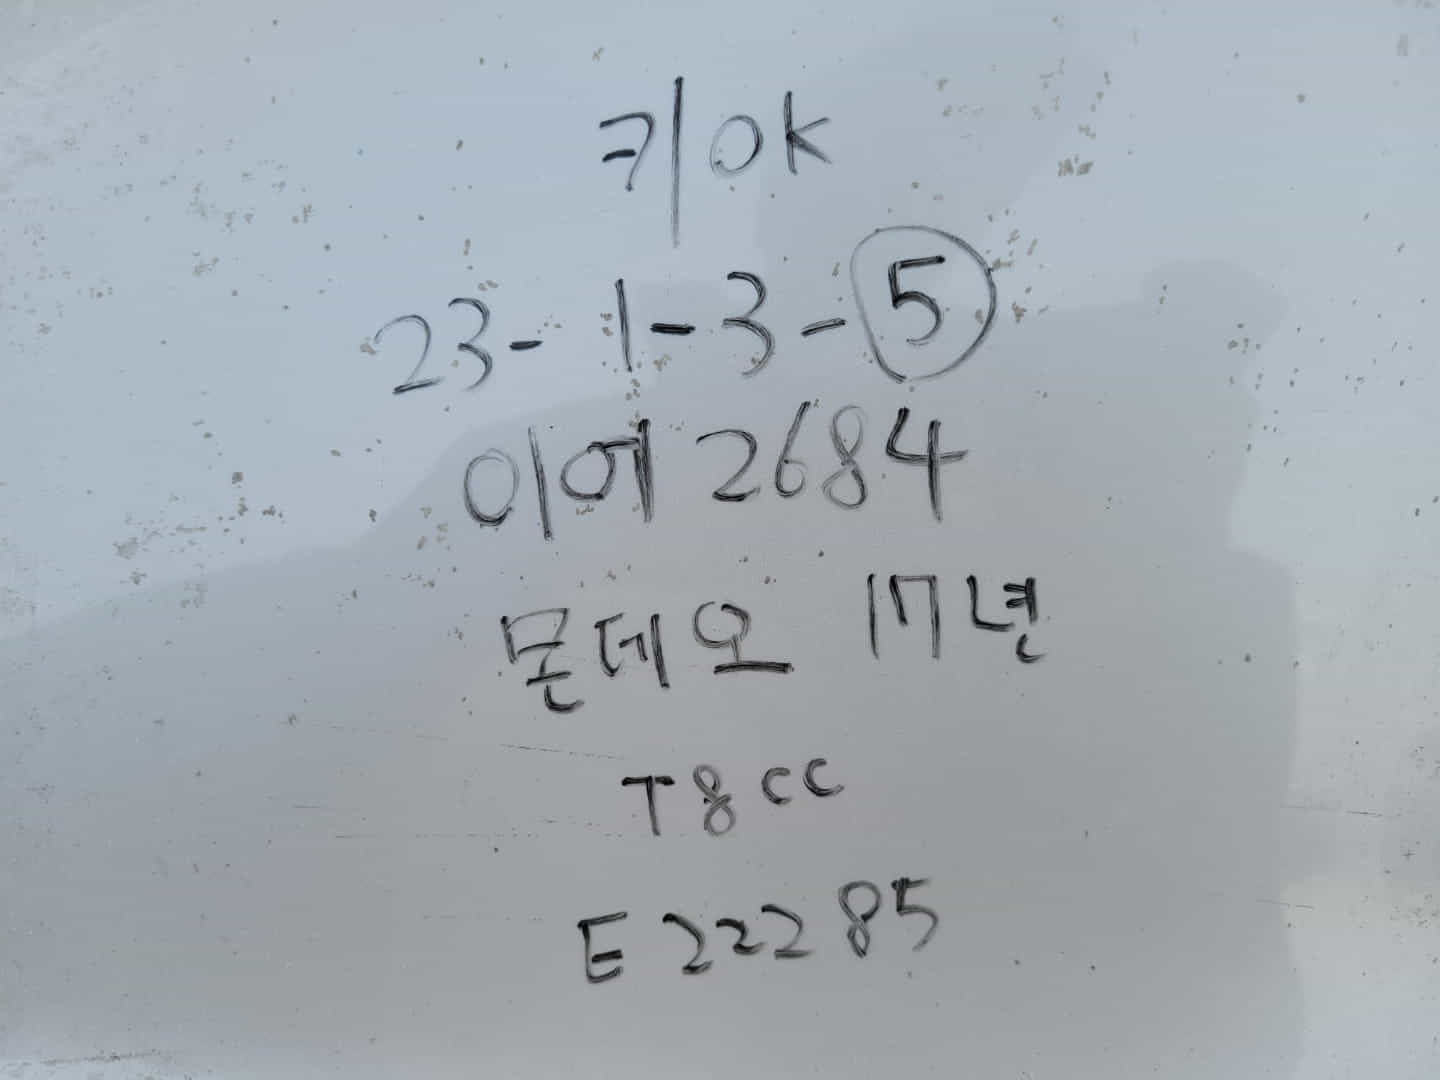 키 OK
23-1-3-⑤
이어 2684
몬데오 17년
T8CC
E22285